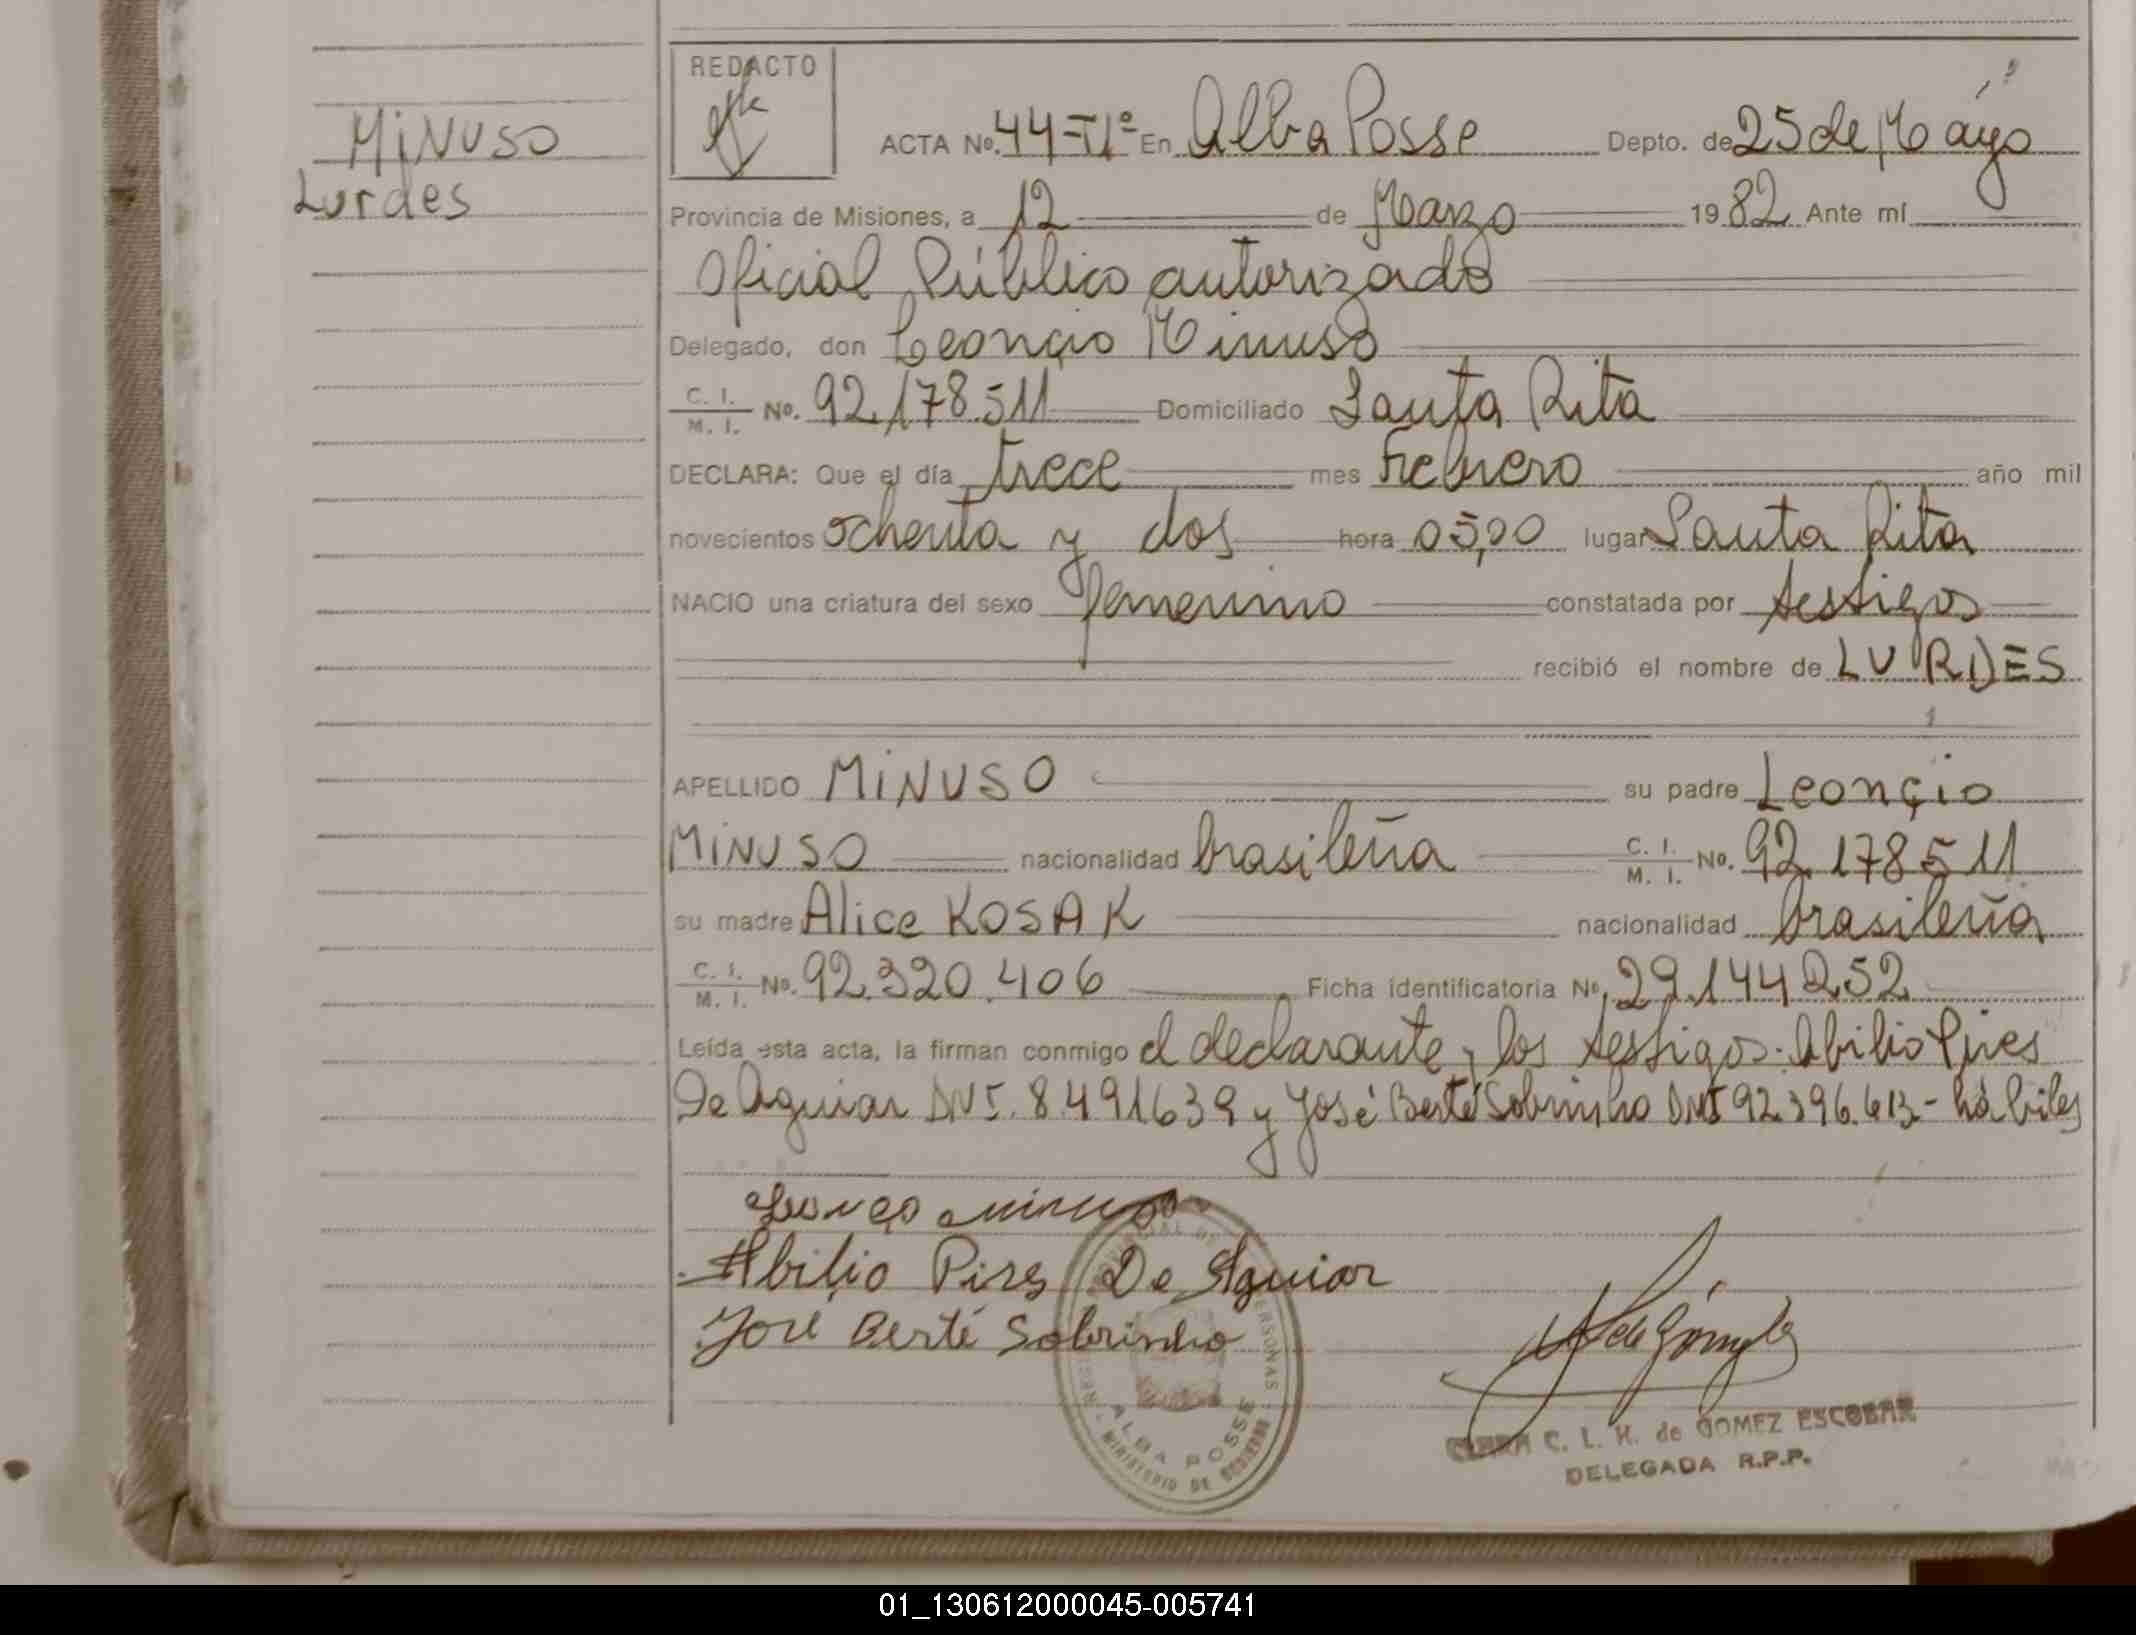 MINUSO
Lurdes
REDACTO
ACTA Nº. 44-TIº En Alba Posse Depto. de 25 de Mayo
Provincia de Misiones, a 12 de Marzo 1982 Ante mí
Oficial Público autorizado
Delegado, don Leonçio Minuso
C. I.
M. I. Nº. 92.178.511 Domiciliado Santa Rita
DECLARA: Que el día trece mes Febrero año mil
novecientos ochenta y dos hora 05,00 lugar Santa Rita
NACIO una criatura del sexo femenino constatada por testigos
recibió el nombre de LURDES
APELLIDO MINUSO su padre Leonçio
MINUSO nacionalidad brasileña C. I. M. I. Nº. 92.178511
su madre Alice KOSAK nacionalidad brasileña
C. I.
M. I. Nº. 92.320.406 Ficha identificatoria Nº. 29.144252
Leída esta acta, la firman conmigo el declarante y los testigos: Abilio Pires
De Aguiar DNI. 8491639 y José Berté Sobrinho DNI 92.396.613 - hábiles
Leonço Minuso
Abilio Pires De Aguiar
José Berté Sobrinho
ALBA POSSE
MINISTERIO DE GOBIERNO
C. L. H. de GOMEZ ESCOBAR
DELEGADA R.P.P.
01_130612000045-005741